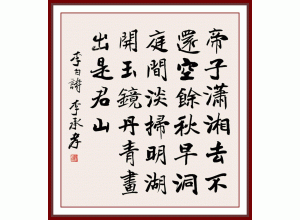 帝子瀟湘去不
還空餘秋草洞
庭間淡掃明湖
開玉鏡丹青畫
出是君山
李白詩 李承